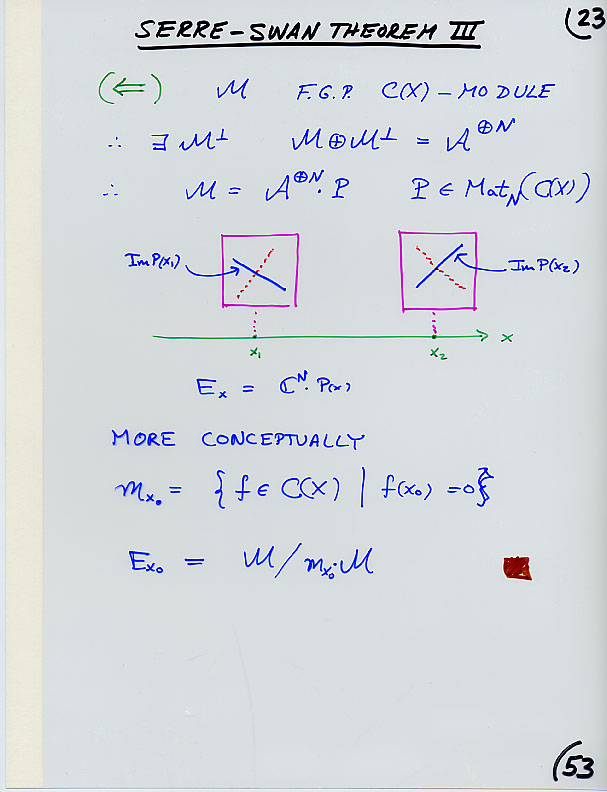 SERRE-SWAN THEOREM III
(23
(⇐) M F.G.P. C(X)-MODULE
∴ ∃ M⊥ M⊕M⊥ = A^⊕N
∴ M = A^⊕N · P P ∈ Mat_N(C(X))
Im P(x₁) Im P(x₂)
x
x₁ x₂
E_x = ℂ^N · P(x)
MORE CONCEPTUALLY
m_x₀ = { f ∈ C(X) | f(x₀) = 0 }
E_x₀ = M / m_x₀ · M
(53